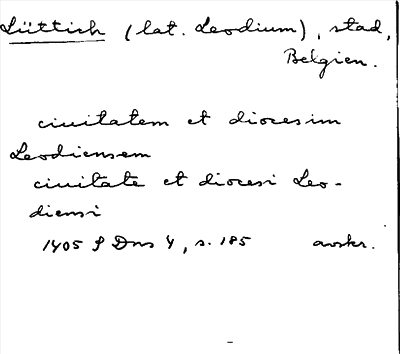 Lüttich (lat. Leodium), stad,
Belgien.
ciuitatem et diocesim
Leodiensem
ciuitate et diocesi Leo-
diensi
1405 P Dns 4, s. 185 avskr.